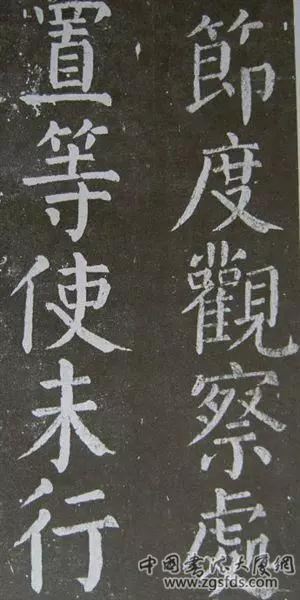 節度觀察處
置等使未行
中国书法大展网
www.zgsfds.com